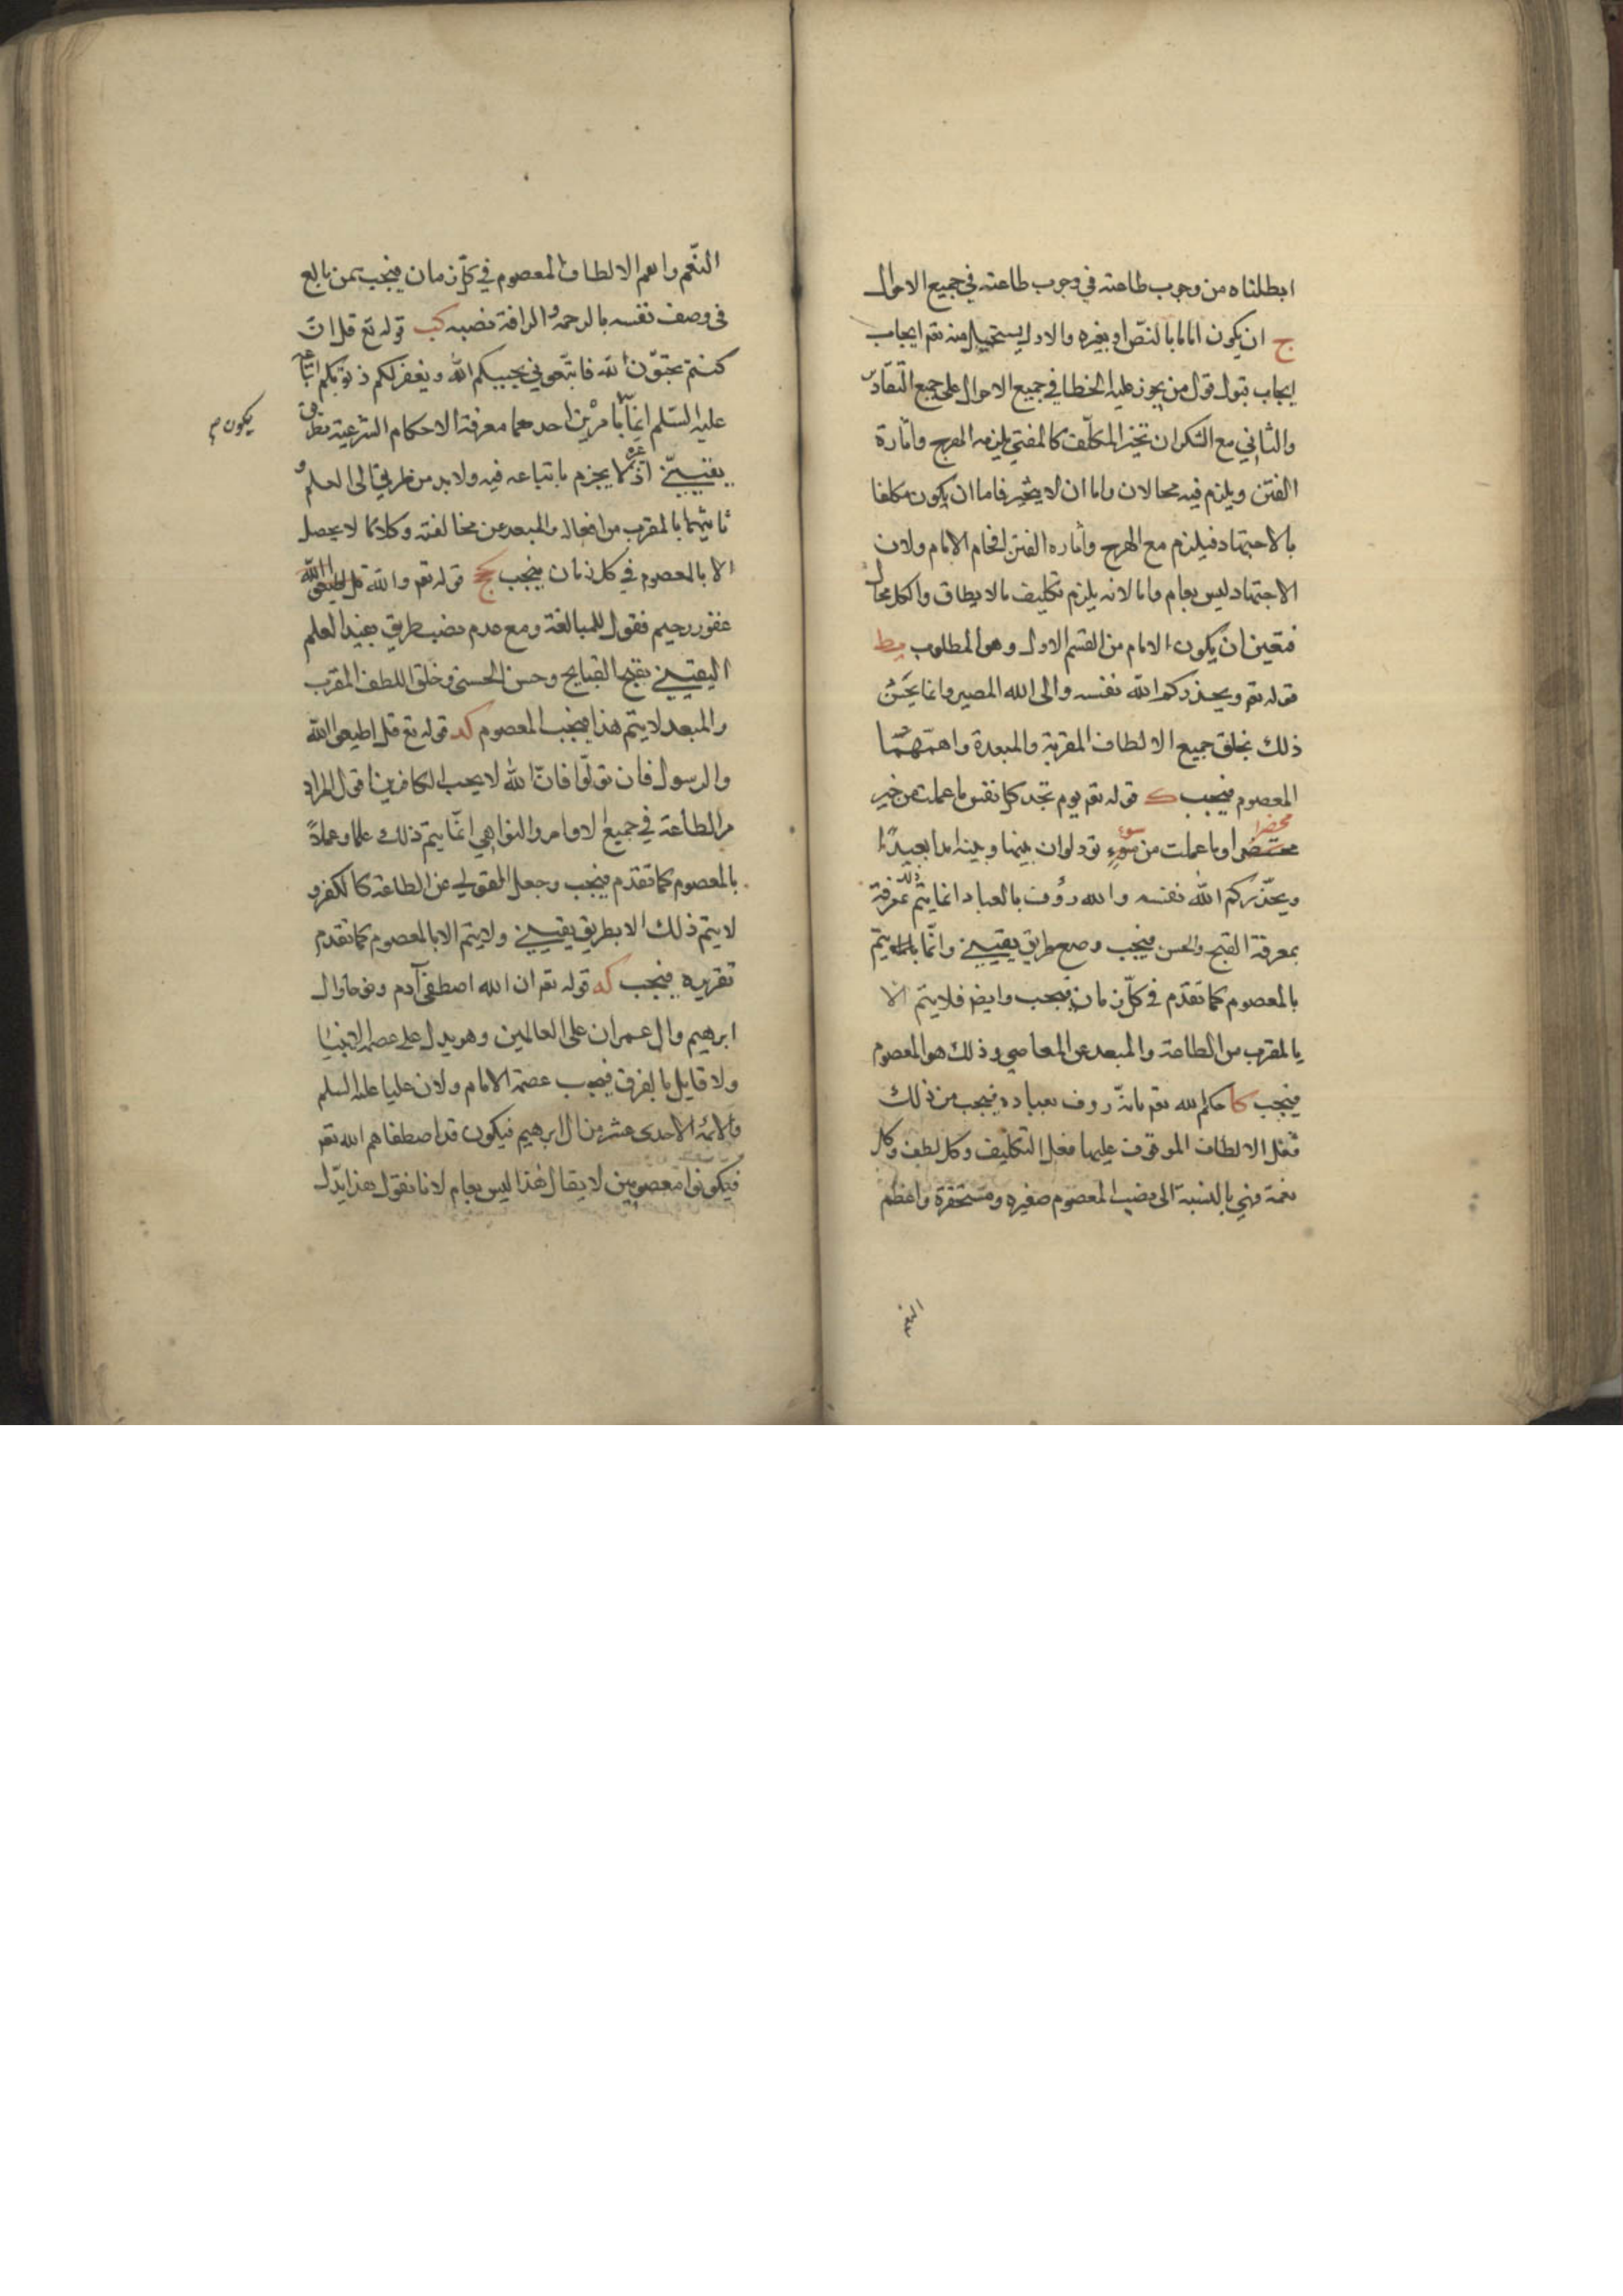 ابطلناه من وجوب طاعته في وجوب طاعته في جميع الاحوال
ج ان يكون اماما بالنصّ او بغيره والاول يستحيل منه تعم ايجاب
ايجاب قبول قول من يجوز عليه الخطا في جميع الاحوال على جميع التقادير
والثاني مع الشكر ان تخير المكلّف كالمفتي يلزمه الهرج واثارة
الفتن ويلزم فيه محالان واما ان لا يتخير فاما ان يكون مكلفا
بالاجتهاد فيلزم مع الهرج واثاره الفتن افحام الامام ولان
الاجتهاد ليس بعام واما لانه يلزم تكليف مالا يطاق والكل محال
فتعين ان يكون الامام من القسم الاول وهو المطلوب يط
قوله تعم ويحذركم الله نفسه والى الله المصير وانما يحسن
ذلك بخلق جميع الالطاف المقربة والمبعدة واهمّها
المعصوم فيجب ك قوله تعم يوم تجد كل نفس ما عملت من خير
محضرا وما عملت من سوء تود لو ان بينها وبينه امدا بعيدًا
ويحذّركم الله نفسه والله رؤف بالعباد انما يتم ذلك بمعرفة
بمعرفة القبح والحسن فيجب وضع طريق يقيني وانّما يتم
بالمعصوم كما تقدّم في كلّ زمان فيجب وايضا فلا يتم الا
بالمقرب من الطاعة والمبعد عن المعاصي وذلك هو المعصوم
فيجب كا حكم الله تعم بانّه روف بعباده فيجب من ذلك
فعل الالطاف الموقوف عليها فعل التكليف وكل لطف وكل
نعمة فهي بالنسبة الى نصب المعصوم صغيره ومستحقرة واعظم
النعم
النّعم واهم الالطاف المعصوم في كلّ زمان فيجب ممن بالغ
في وصف نفسه بالرحمة والرافة نصبه كب قوله تع قل ان
كنتم تحبّون الله فاتبعوني يحببكم الله ويغفر لكم ذنوبكم اتباعه
عليه السّلم انما يتم بامرين احدهما معرفة الاحكام الشرعية بطريق
يقينيّ اذ غيره لا يجزم باتباعه فيه ولا بد من طريق الى العلم و
يكون
ثانيهما بالمقرب من افعاله والمبعد عن مخالفته وكلاهما لا يحصل
الا بالمعصوم في كل زمان فيجب كج قوله تعم والله
غفور رحيم فقول للمبالغة ومع عدم نصب طريق يفيد العلم
اليقيني بقبح القبايح وحسن الحسن وخلق اللطف المقرب
والمبعد لا يتم هذا فيجب المعصوم كد قوله تع قل اطيعوا الله
والرسول فان تولّوا فانّ الله لا يحب الكافرين اقول المراد
من الطاعة في جميع الاوامر والنواهي انّما يتم ذلك علما وعملاً
بالمعصوم كما تقدّم فيجب وجعل المتولي عن الطاعة كالكفر و
لا يتم ذلك الا بطريق يقيني ولا يتم الا بالمعصوم كما تقدم
تقريره فيجب كه قوله تعم ان الله اصطفى آدم ونوحا وال
ابرهيم وال عمران على العالمين وهو يدل على عصمة الانبيا
ولا قايل بالفرق فيجب عصمة الامام ولان عليا عليه السلم
والائمة الاحدى عشر من ال ابرهيم فيكون قد اصطفاهم الله تعم
فيكونوا معصومين لا يقال هذا ليس بعام لانا نقول هذا يدّل